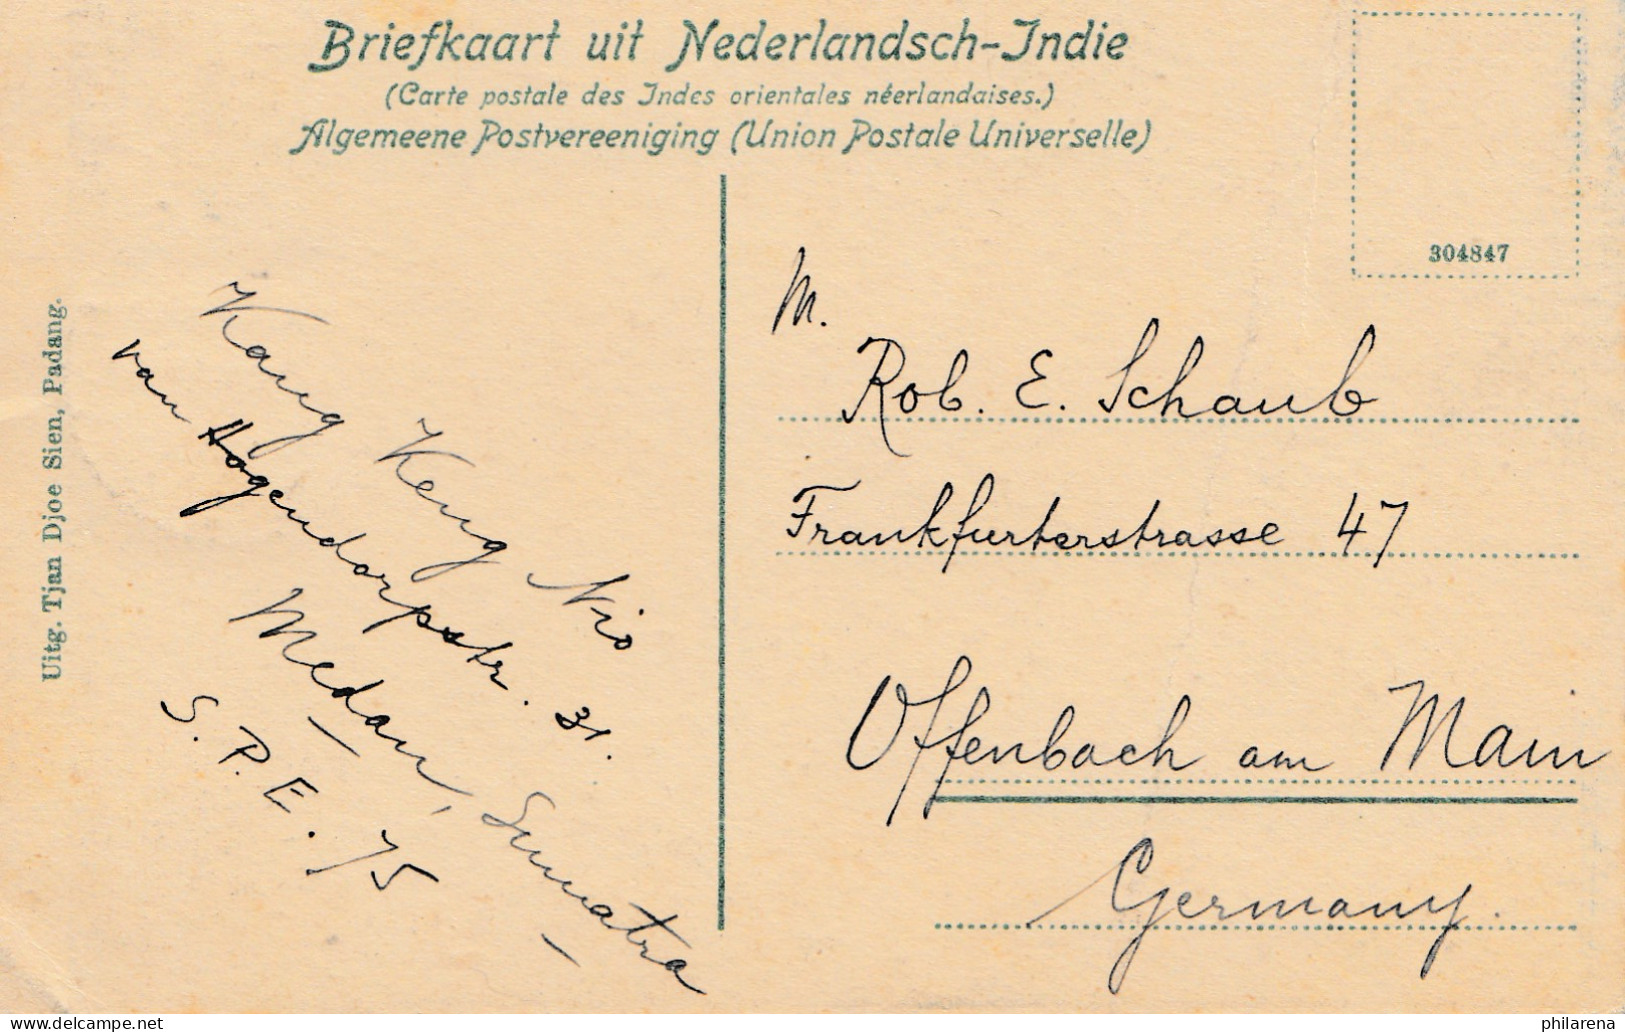 Briefkaart uit Nederlandsch-Indie
(Carte postale des Indes orientales néerlandaises.)
Algemeene Postvereeniging (Union Postale Universelle)
304847
Uitg. Tjan Djoe Sien, Padang.
Kang Keng Nio
van Hogendorpstr. 31.
Medan, Sumatra
S.P.E. 75
M.
Rob. E. Schaub
Frankfurterstrasse 47
Offenbach am Main
Germany.
philarena